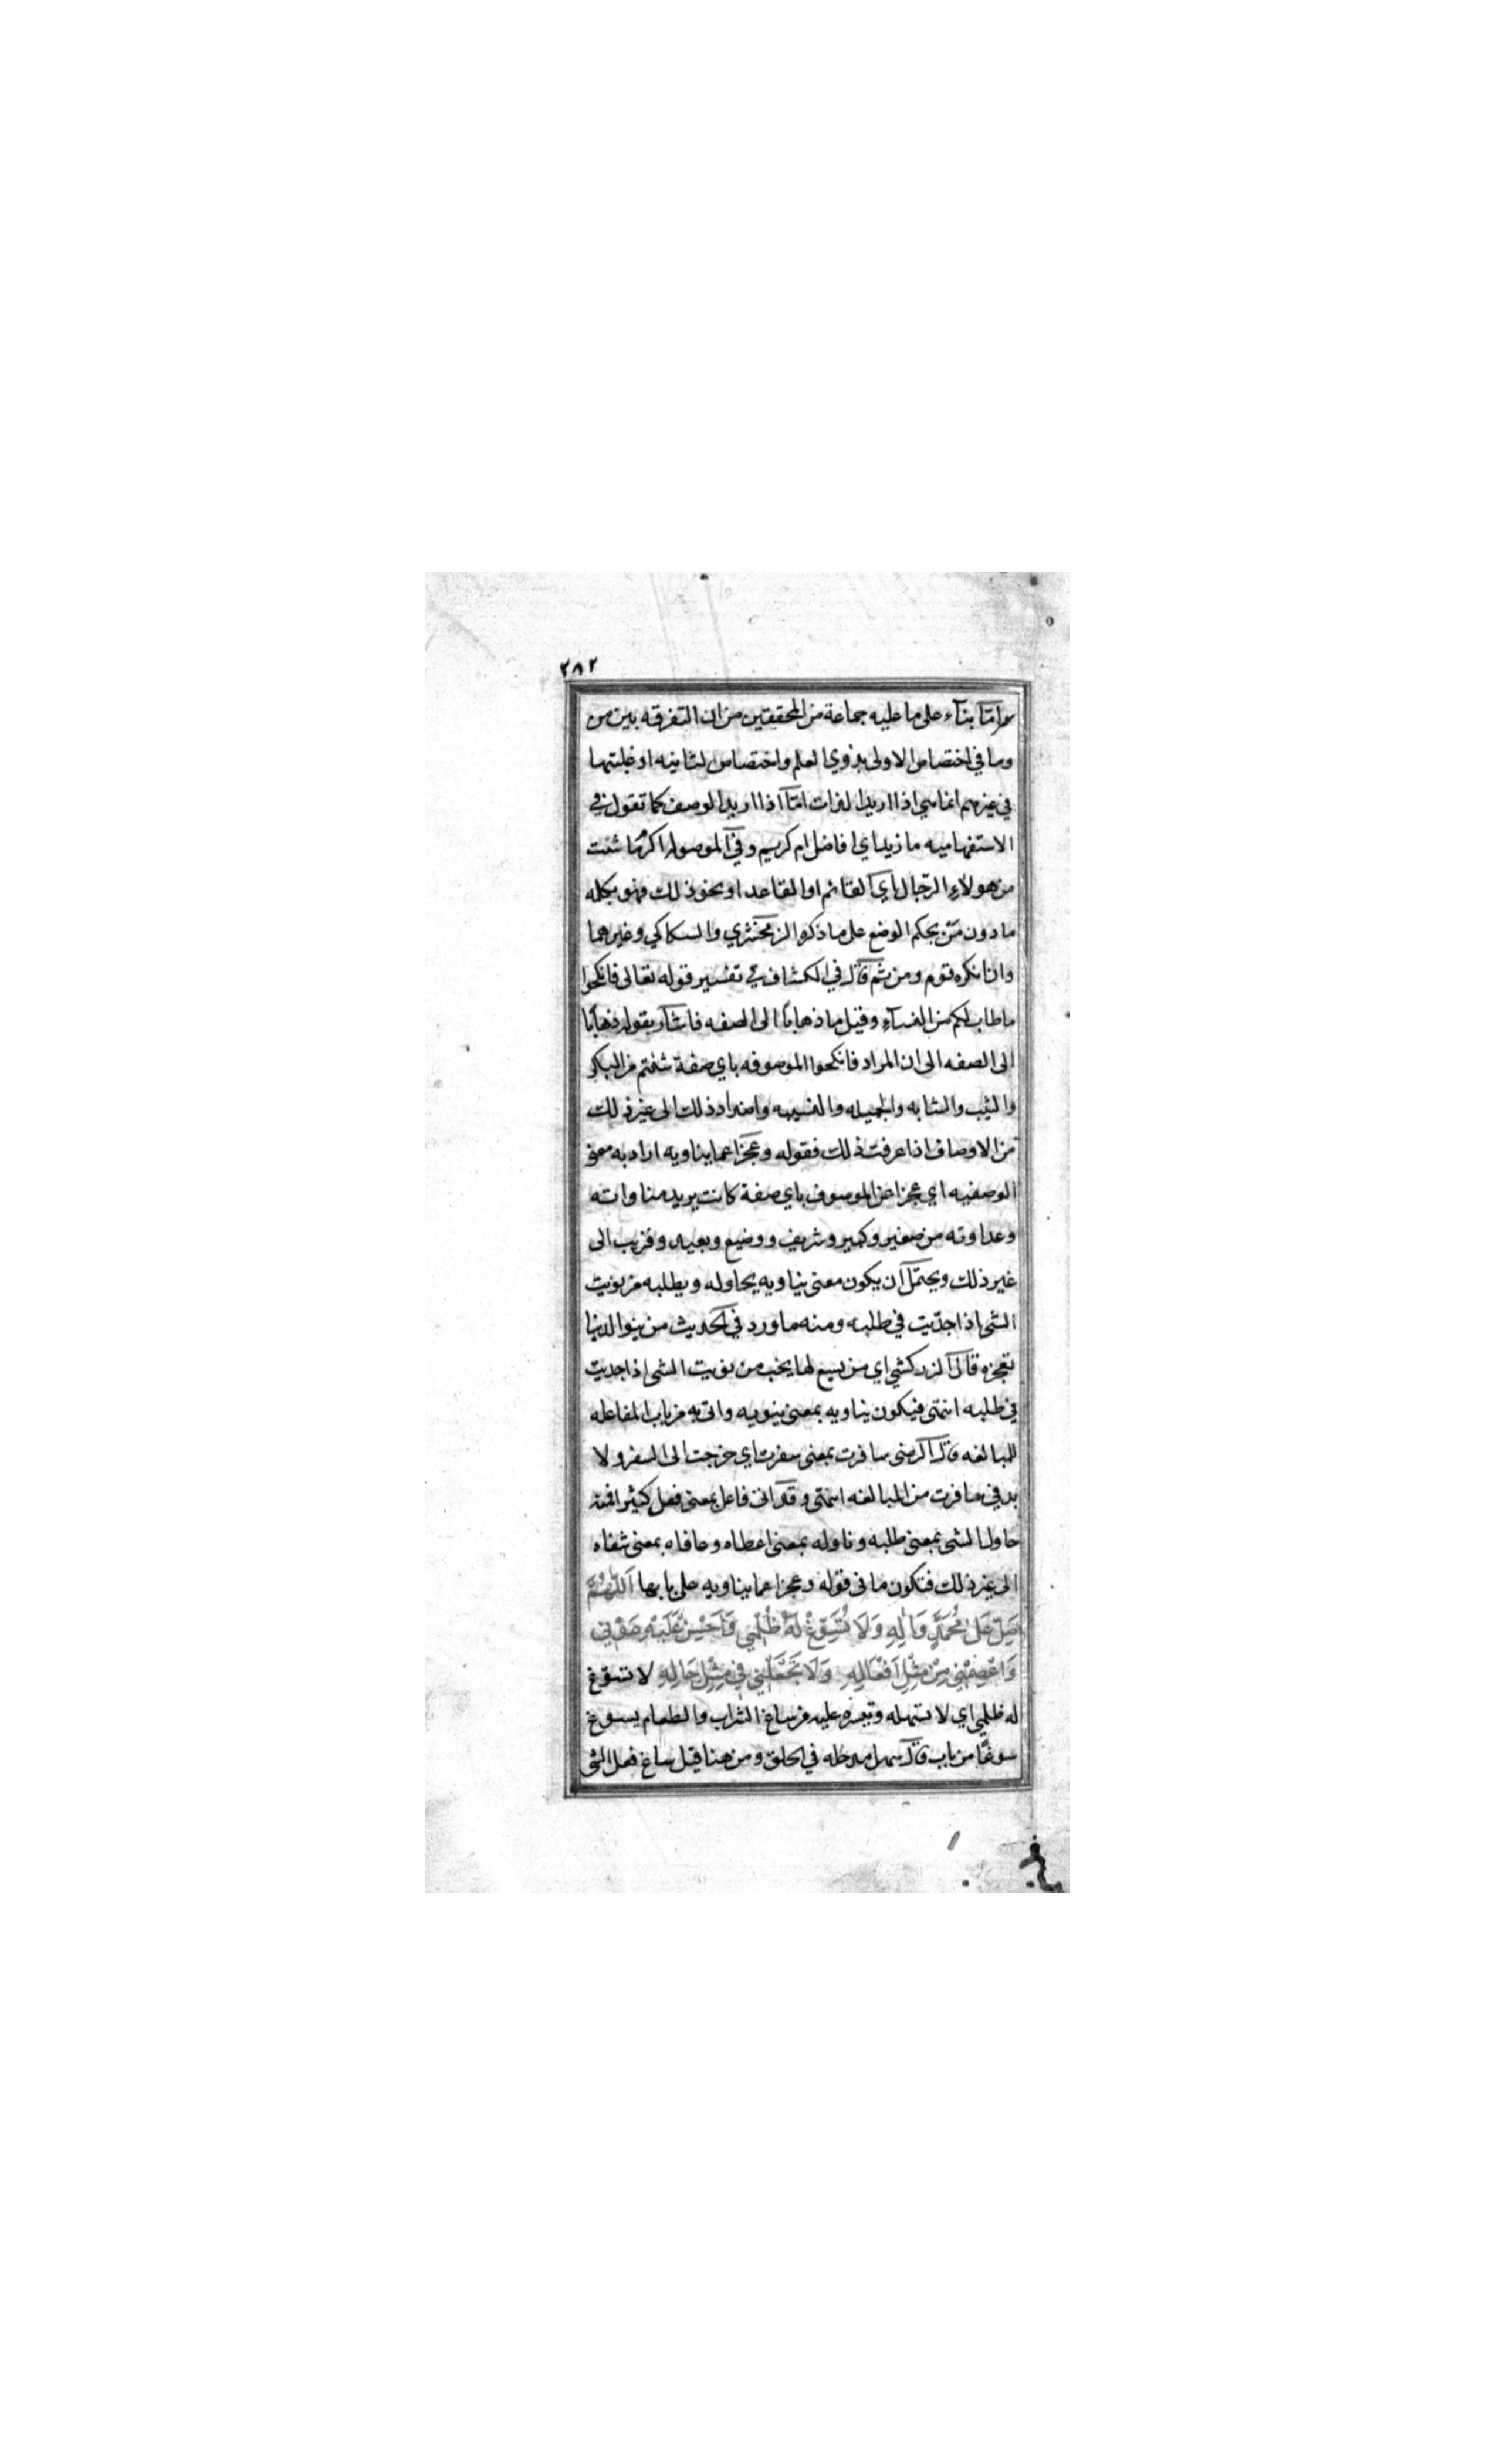 ٢٨٢
واما بناء على ما عليه جماعة من المحققين من ان التفرقه بين من
وما في اختصاص الاولى بذوي العلم واختصاص الثانيه او غلبتها
في غيرهم انما هي اذا اريد الذات امّا اذا اريد الوصف كما تقول في
الاستفهاميه ما زيد اي افاضل ام كريم وفي الموصوله اكرم ما شئت
من هولاء الرّجال اي القائم او القاعد او نحو ذلك فهو بكله
ما دون مَن بحكم الوضع على ما ذكره الزمخشري والسكاكي وغيرهما
وان انكره قوم ومن ثم قال في الكشاف في تفسير قوله تعالى فانكحوا
ما طاب لكم من النساء وقيل ما ذهاباً الى الصفه فاشار بقوله ذهابًا
الى الصفه الى ان المراد فانكحوا الموصوفه باي صفة شئتم من البكر
والثيب والشابه والجميله والنسيبه واضداد ذلك الى غير ذلك
من الاوصاف اذا عرفت ذلك فقوله وعجزا عما يناويه اراد به معنى
الوصفيه اي عجزا عن الموصوف باي صفة كانت يريد مناواته
وعداوته من صغير وكبير وشريف ووضيع وبعيد وقريب الى
غير ذلك ويحتمل ان يكون معنى يناويه يحاوله ويطلبه من نويت
الشي اذا جدّيت في طلبه ومنه ما ورد في الحديث من ينو الدنيا
تعجزه قال الزركشي اي من يسع لها يخب من نويت الشي اذا جديت
في طلبه انتهى فيكون يناويه بمعنى ينويه واتى به من باب المفاعله
للمبالغه قال الرضى سافرت بمعنى سفرت اي خرجت الى السفر ولا
بد في سافرت من المبالغه انتهى وقد اتى فاعل بمعنى فعل كثيرا فمنه
حاول الشى بمعنى طلبه وناوله بمعنى اعطاه وعافاه بمعنى شفاه
الى غير ذلك فتكون ما في قوله وعجزا عما يناويه على بابها اَللّٰهُمَّ
صَلِّ عَلٰى مُحَمَّدٍ وَاٰلِهِ وَلَا تُسَوِّغْ لَهُ ظُلْمِي وَاَحْسِنْ عَلَيْهِ عَوْنِي
وَاعْصِمْنِي مِنْ مِثْلِ اَفْعَالِهِ وَلَا تَجْعَلْنِي فِي مِثْلِ حَالِهِ لا تسوّغ
له ظلمي اي لا تسهله وتيسره عليه من ساغ الشراب والطعام يسوغ
سوغًا من باب قال سهل مدخله في الحلق ومن هنا قيل ساغ فعل الشى